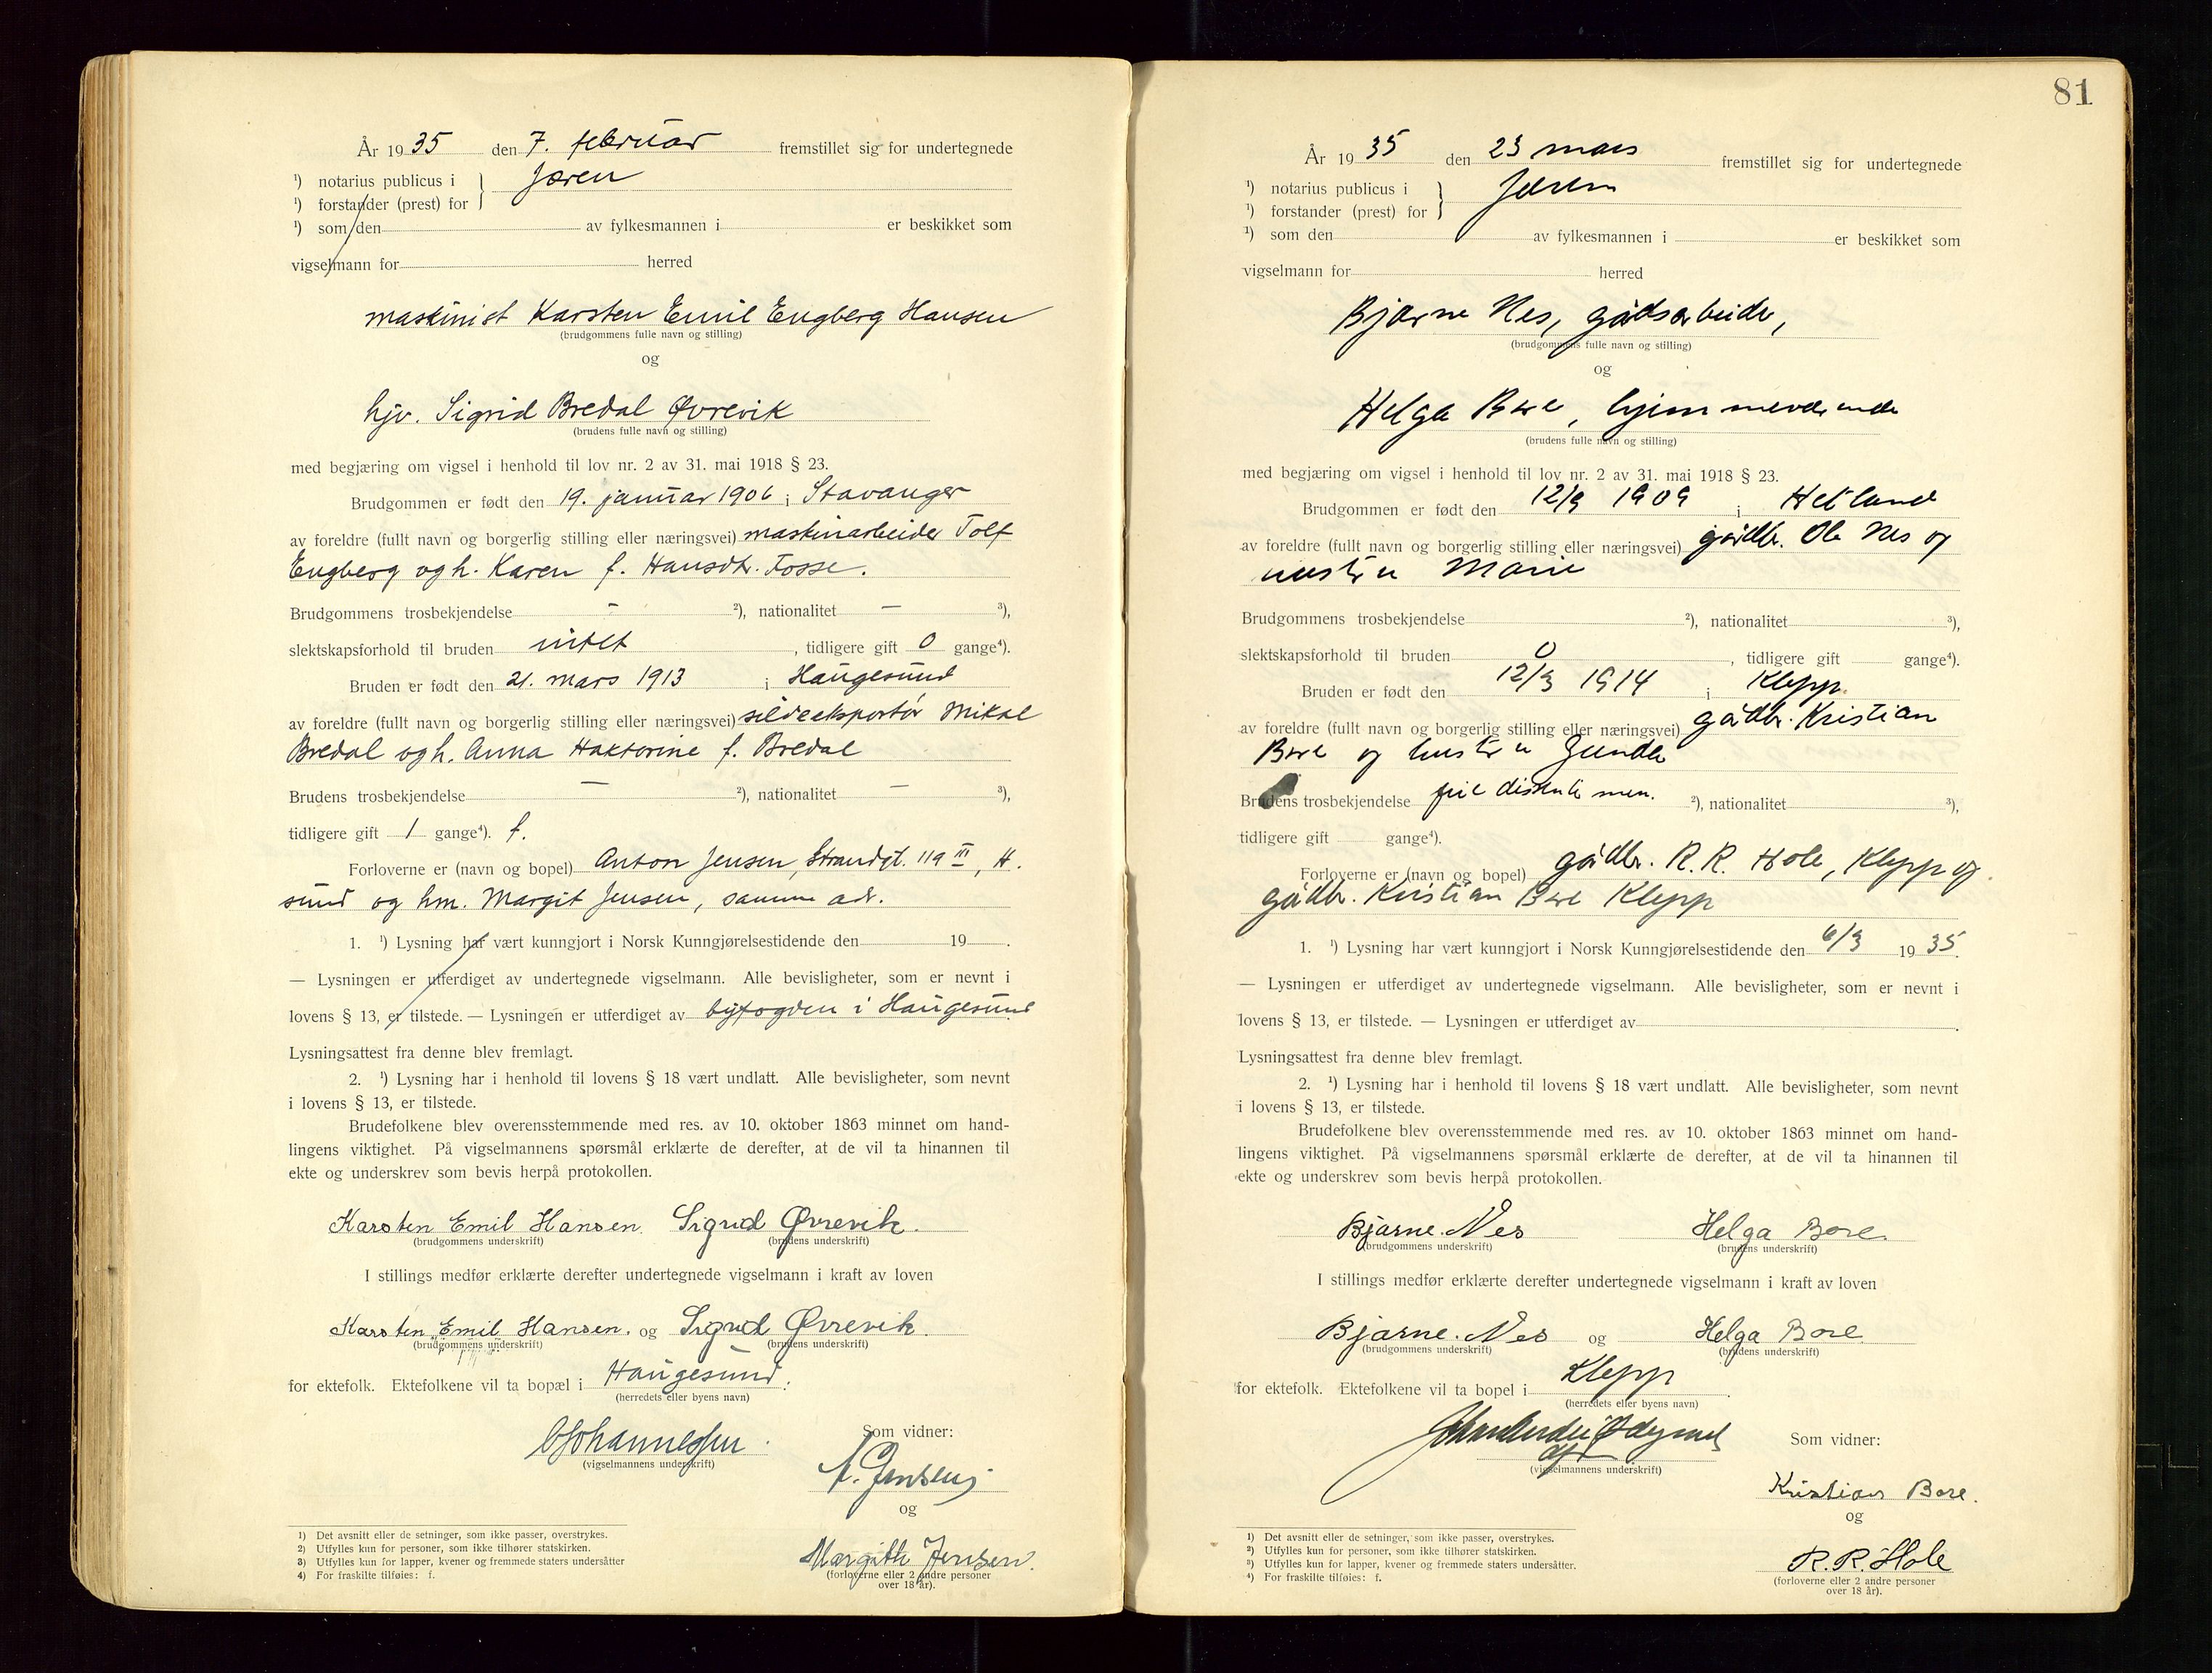 År 1935 den 7. februar fremstillet sig for undertegnede
¹) notarius publicus i } Jæren
¹) forstander (prest) for
¹) som den av fylkesmannen i er beskikket som
vigselmann for herred
maskinist Karsten Emil Engberg Hansen
(brudgommens fulle navn og stilling)
og
hjv. Sigrid Bredal Øvrevik
(brudens fulle navn og stilling)
med begjæring om vigsel i henhold til lov nr. 2 av 31. mai 1918 § 23.
Brudgommen er født den 19. januar 1906 i Stavanger
av foreldre (fullt navn og borgerlig stilling eller næringsvei) maskinarbeider Tolf
Engberg og h. Karen f. Hansdtr. Fosse.
Brudgommens trosbekjendelse - ²), nationalitet — ³),
slektskapsforhold til bruden intet, tidligere gift 0 gange⁴).
Bruden er født den 21. mars 1913 i Haugesund
av foreldre (fullt navn og borgerlig stilling eller næringsvei) sildeeksportør Mikal
Bredal og h. Anna Haktorine f. Bredal
Brudens trosbekjendelse — ²), nationalitet — ³),
tidligere gift 1 gange⁴). f.
Forloverne er (navn og bopel) Anton Jensen, Strandgt. 119 III, H.
sund og hm. Margit Jensen, samme adr.
1. ¹) Lysning har vært kunngjort i Norsk Kunngjørelsestidende den 19 .
— Lysningen er utferdiget av undertegnede vigselmann. Alle bevisligheter, som er nevnt i
lovens § 13, er tilstede. — Lysningen er utferdiget av byfogden i Haugesund
Lysningsattest fra denne blev fremlagt.
2. ¹) Lysning har i henhold til lovens § 18 vært undlatt. Alle bevisligheter, som nevnt
i lovens § 13, er tilstede.
Brudefolkene blev overensstemmende med res. av 10. oktober 1863 minnet om hand-
lingens viktighet. På vigselmannens spørsmål erklærte de derefter, at de vil ta hinannen til
ekte og underskrev som bevis herpå protokollen.
Karsten Emil Hansen. Sigrid Øvrevik.
(brudgommens underskrift) (brudens underskrift)
I stillings medfør erklærte derefter undertegnede vigselmann i kraft av loven
Karsten Emil Hansen. og Sigrid Øvrevik.
(brudgommens underskrift) (brudens underskrift)
for ektefolk. Ektefolkene vil ta bopæl i Haugesund.
(herredets eller byens navn)
Johannessen
(vigselmannens underskrift)
Som vidner:
A. Jensen
og
Margith Jensen.
(forloverne eller 2 andre personer
over 18 år).
1) Det avsnitt eller de setninger, som ikke passer, overstrykes.
2) Utfylles kun for personer, som ikke tilhører statskirken.
3) Utfylles kun for lapper, kvener og fremmede staters undersåtter
4) For fraskilte tilføies: f.
81
År 1935 den 23 mars fremstillet sig for undertegnede
¹) notarius publicus i } Jæren
¹) forstander (prest) for
¹) som den av fylkesmannen i er beskikket som
vigselmann for herred
Bjarne Nes, gårdsarbeider,
(brudgommens fulle navn og stilling)
og
Helga Bore, hjemmeværende
(brudens fulle navn og stilling)
med begjæring om vigsel i henhold til lov nr. 2 av 31. mai 1918 § 23.
Brudgommen er født den 12/9 1909 i Hetland
av foreldre (fullt navn og borgerlig stilling eller næringsvei) gårdbr. Ole Nes og
hustru Marie
Brudgommens trosbekjendelse ²), nationalitet ³),
slektskapsforhold til bruden 0, tidligere gift gange⁴).
Bruden er født den 12/3 1914 i Klepp.
av foreldre (fullt navn og borgerlig stilling eller næringsvei) gårdbr. Kristian
Bore og hustru Gunda
Brudens trosbekjendelse fri dissenter men. ²), nationalitet ³),
tidligere gift gange⁴).
Forloverne er (navn og bopel) gårdbr. R. R. Hole, Klepp og
gårdbr. Kristian Bore Klepp
1. ¹) Lysning har vært kunngjort i Norsk Kunngjørelsestidende den 6/3 1935.
— Lysningen er utferdiget av undertegnede vigselmann. Alle bevisligheter, som er nevnt i
lovens § 13, er tilstede. — Lysningen er utferdiget av .
Lysningsattest fra denne blev fremlagt.
2. ¹) Lysning har i henhold til lovens § 18 vært undlatt. Alle bevisligheter, som nevnt
i lovens § 13, er tilstede.
Brudefolkene blev overensstemmende med res. av 10. oktober 1863 minnet om hand-
lingens viktighet. På vigselmannens spørsmål erklærte de derefter, at de vil ta hinannen til
ekte og underskrev som bevis herpå protokollen.
Bjarne. Nes Helga Bore.
(brudgommens underskrift) (brudens underskrift)
I stillings medfør erklærte derefter undertegnede vigselmann i kraft av loven
Bjarne. Nes og Helga Bore
(brudgommens underskrift) (brudens underskrift)
for ektefolk. Ektefolkene vil ta bopel i Klepp.
(herredets eller byens navn)
(vigselmannens underskrift)
Som vidner:
Kristian Bore.
og
R. R. Hole
(forloverne eller 2 andre personer
over 18 år).
¹) Det avsnitt eller de setninger, som ikke passer, overstrykes.
²) Utfylles kun for personer, som ikke tilhører statskirken.
³) Utfylles kun for lapper, kvener og fremmede staters undersåtter.
⁴) For fraskilte tilføies: f.